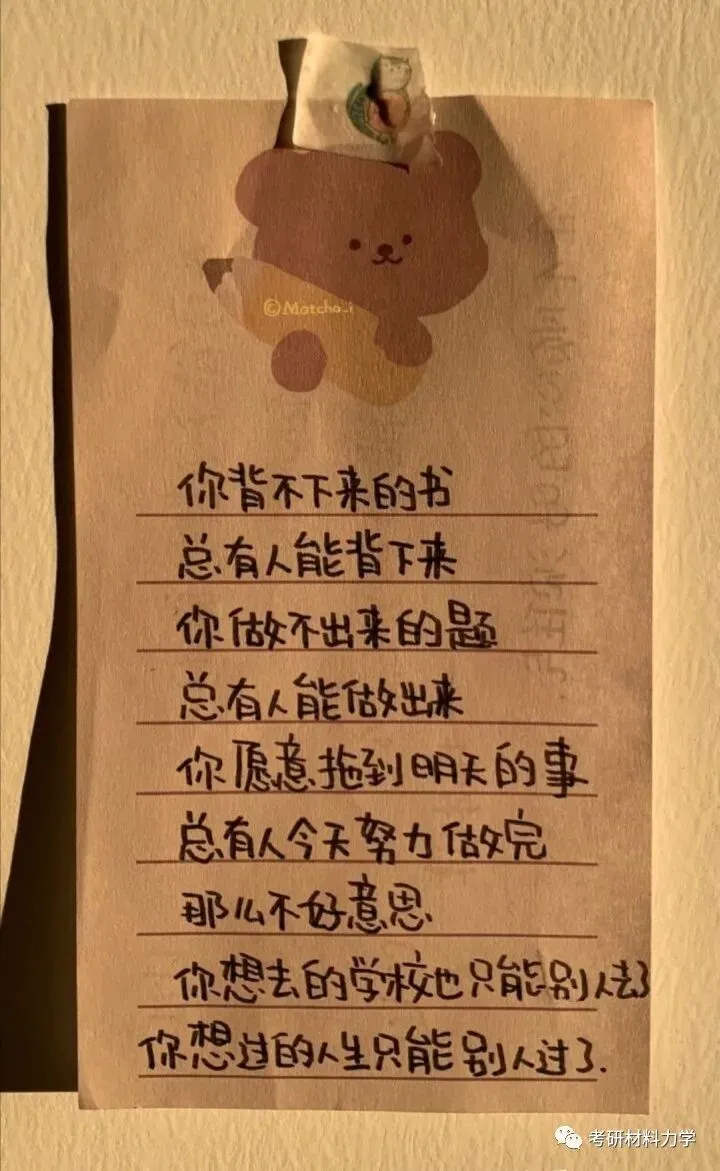 ©Matcha_i
你背不下来的书
总有人能背下来
你做不出来的题
总有人能做出来
你愿意拖到明天的事
总有人今天努力做完
那么不好意思
你想去的学校也只能别人去了
你想过的人生只能别人过了.
考研材料力学